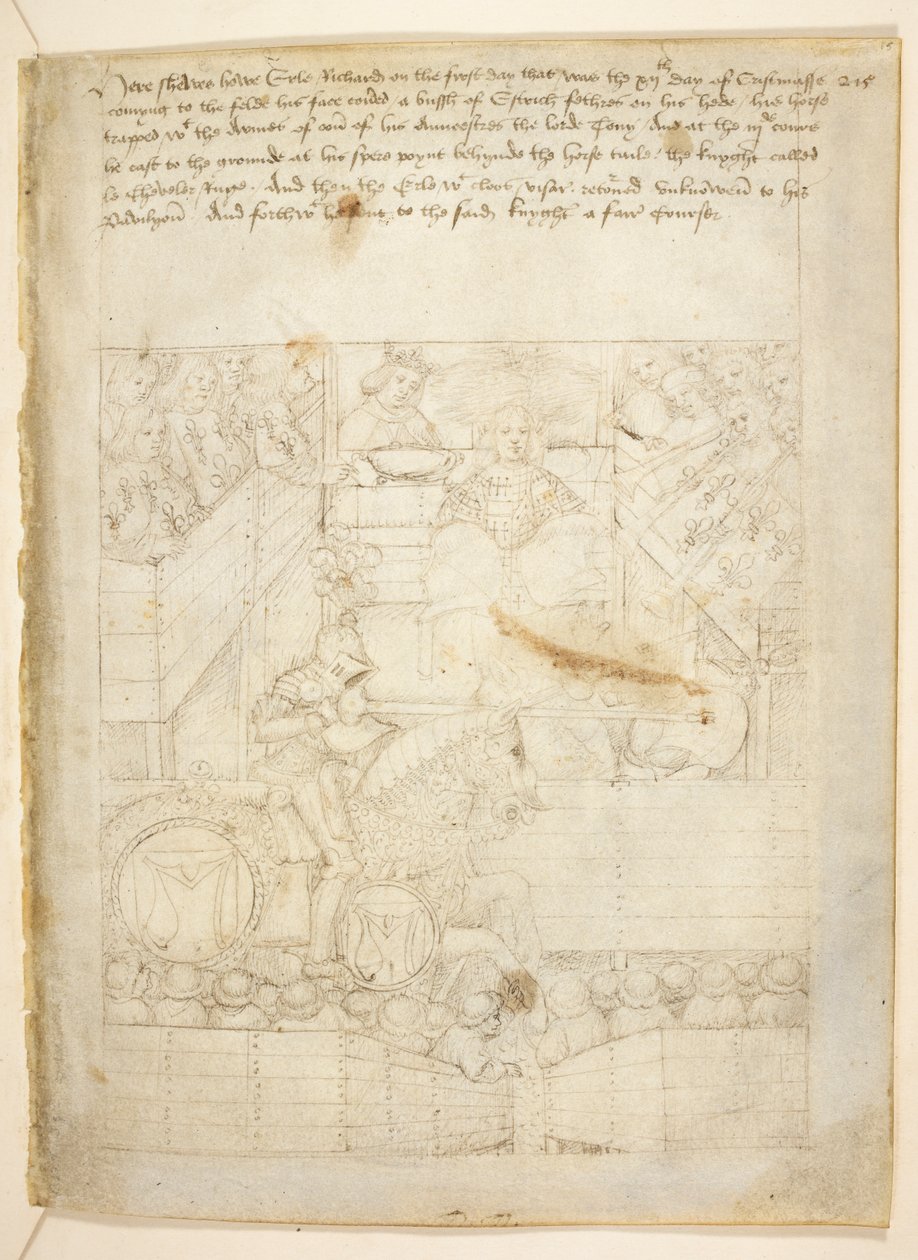 15
Here shewes howe Erle Richard on the first day that was the xijth day of Cristmasse 215
comyng to the felde his face coũed a bussh of Estrich fethres on his hede / his horse
trapped wt the Armes of oon of his Auncestres the lorde Tony And at the iijde cours
he cast to the grounde at his spere poynt behynde the horse taile / the knyght called
le Cheveler Ruge . And then the Erle wt cloos visar retorned unknowen to his
Pavilyon . And forthwt he sent to the said knyght a fair Courser .